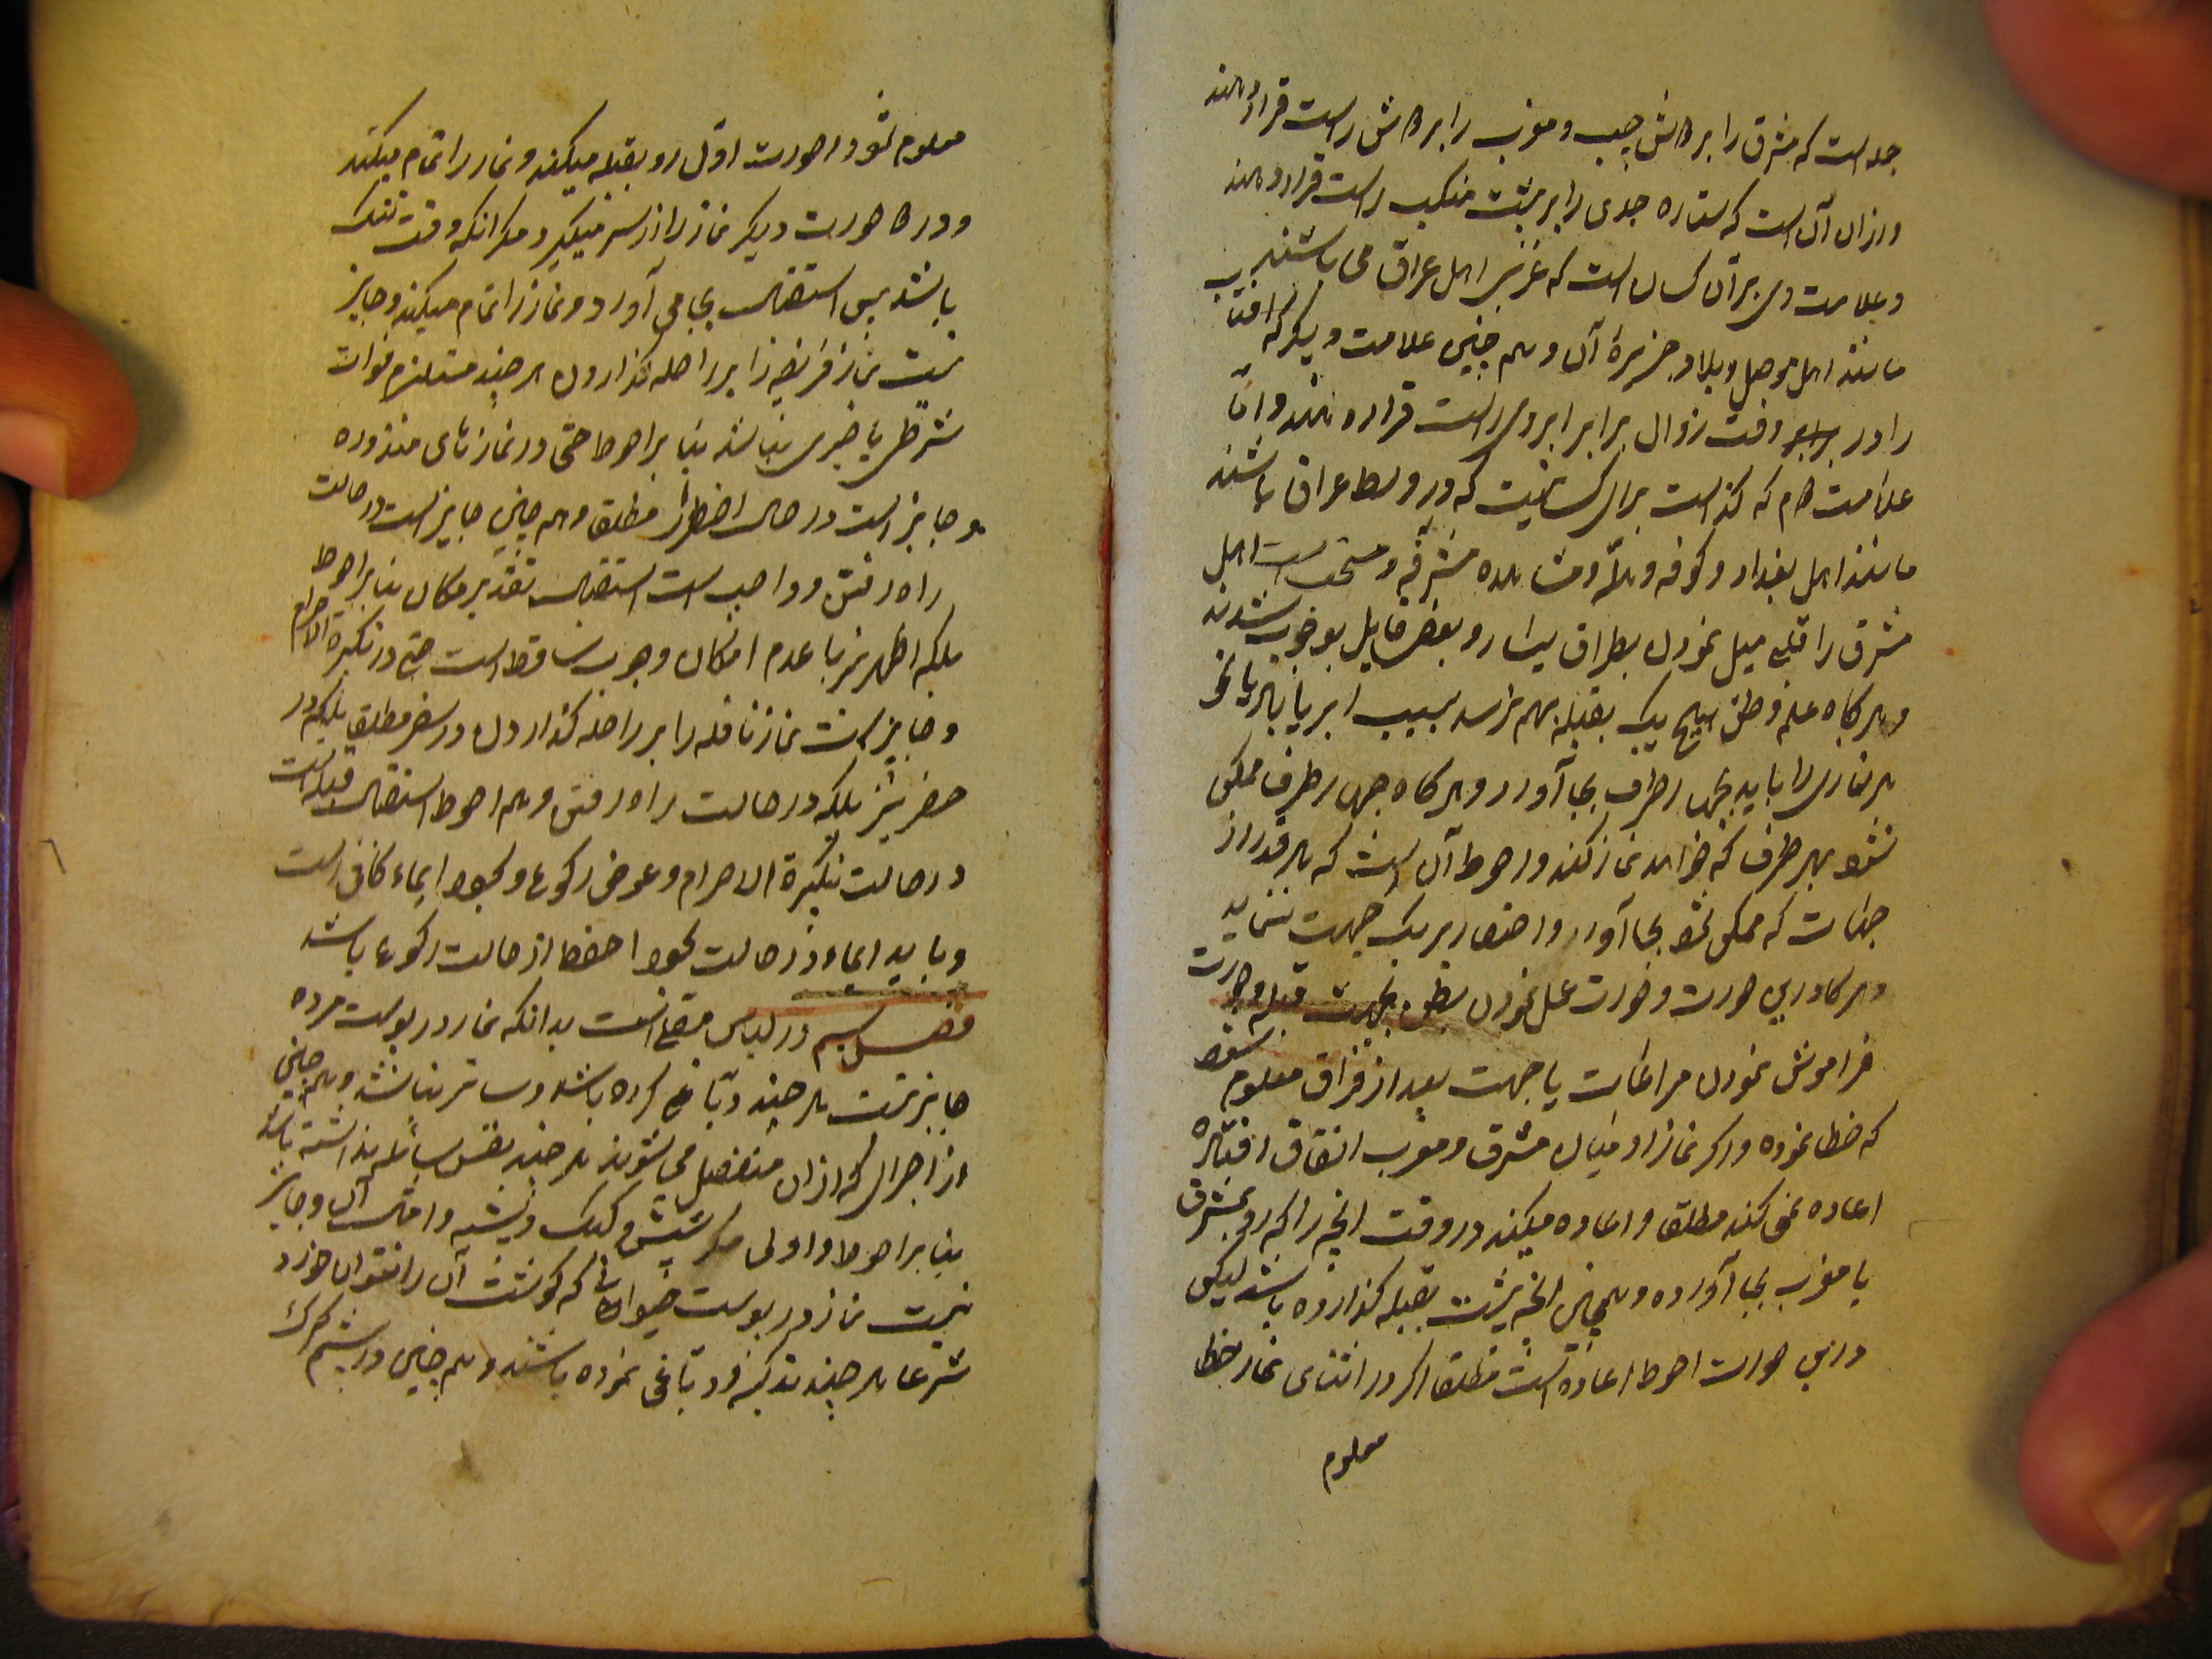 جمله است که مشرق را بر دوش چپ و مغرب را بر دوش راست قرار دهند
و از آن آن است که ستاره جدی را بر پشت منکب راست قرار دهند
و علامت وی بر آن کسان است که غربی اهل عراق می باشند
مانند اهل موصل و بلاد جزیرهٔ آن و هم چنین علامت دیگر که افتاب
را در وقت زوال برابر ابروی راست قرار دهند و امّا
علامت که است برای کسانیست که در وسط عراق باشند
مانند اهل بغداد و کوفه و حلّه و مشاهده مشرفه و مستحب است اهل
مشرق را قلیلی میل نمودن بطرف یسار و بعضی قایل بوجوب شده‌اند
و هرگاه علم و ظن هیچ یک بقبله بهم نرسد بسبب ابر یا باد یا نحو
هر نمازی را باید بچهار طرف بجا آورد و هرگاه چهار طرف ممکن
نشود بهر طرف که خواهد نماز کند و احوط آن است که هر قدر از
جهات که ممکن شود بجا آورد و اختصار بر یک جهت ننماید
و هرگاه در این صورت و صورت عمل نمودن بظن بجهت قبله و صورت
فراموش نمودن مراعات یا جهت بعد از فراق معلوم شود
که خطا نموده و اگر نماز او میان مشرق و مغرب اتفاق افتاده
اعاده نمی کند مطلقا و اعاده میکند در وقت انچه را که رو بمشرق
یا مغرب بجا آورده و همچنین انچه پشت بقبله گذارده باشد لیکن
در این صورت احوط اعاده است مطلقا اگر در اثنای نماز خطا
معلوم
معلوم شود در صورت اوّل رو بقبله میکند و نماز را تمام میکند
و در صورت دیگر نماز را از سر میگیرد مگر انکه وقت تنک
باشد پس استقبال بجا می آورد و نماز را تمام میکند و جایز
نیست نماز فریضه را بر راحله گذاردن هر چند مستلزم فوات
شرطی یا جزئی نباشد بنا بر احوط حتّی در نمازهای منذوره
و جایز است در حال اضطرار مطلقا و هم چنین جایز است در حالت
راه رفتن و واجب است استقبال بقدر امکان بنا بر احوط
بلکه اظهر نیز با عدم امکان وجوب ساقط است حتی در تکبیرة الاحرام
و جایز است نماز نافله را بر راحله گذاردن در سفر مطلقا بلکه در
حضر نیز بلکه در حالت راه رفتن و هم احوط استقبال قبله است
در حالت تکبیرة الاحرام و عوض رکوع و سجود ایماء کافی است
و باید ایماء در حالت سجود اخفض از حالت رکوع باشد
فصل سیم در لباس مصلّی است بدانکه نماز در پوست مرده
جایز نیست هر چند دبّاغی کرده باشد و ساتر نباشد و هم چنین
از اجزائی که از آن منفصل می شوند هر چند نفس سائله نداشته باشد
بنا بر احوط و اولی مگر شپش و کیک و پشه و امثال آن و جایز
نیست نماز در پوست حیوانی که گوشت آن را نتوان خورد
شرعا هر چند تذکیه و دبّاغی نموده باشند و هم چنین در پشم کرک